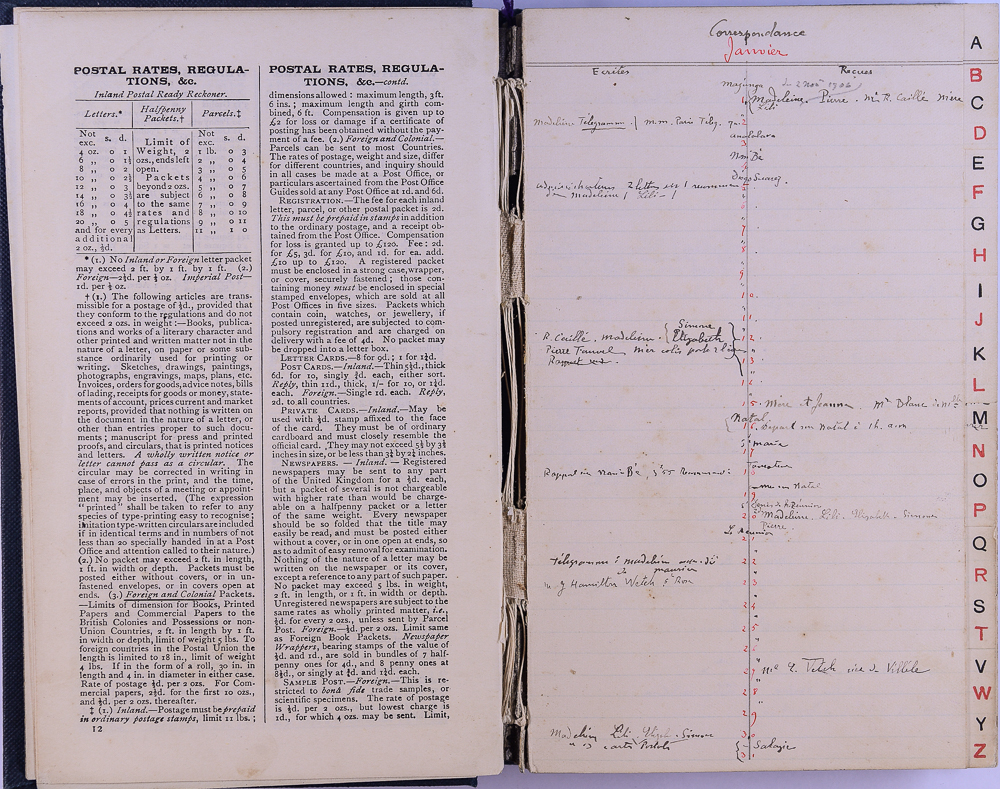 POSTAL RATES, REGULA-
TIONS, &c.
Inland Postal Ready Reckoner.
Letters.* Halfpenny Packets.† Parcels.‡
Not exc. s. d.
4 oz. 0 1
6 „ 0 1½
8 „ 0 2
10 „ 0 2½
12 „ 0 3
14 „ 0 3½
16 „ 0 4
18 „ 0 4½
20 „ 0 5
and for every
additional
2 oz., ½d.
Limit of
Weight, 2
ozs., ends left
open.
Packets
beyond 2 ozs.
are subject
to the same
rates and
regulations
as Letters.
Not exc. s. d.
1 lb. 0 3
2 „ 0 4
3 „ 0 5
4 „ 0 6
5 „ 0 7
6 „ 0 8
7 „ 0 9
8 „ 0 10
9 „ 0 11
11 „ 1 0
* (1.) No Inland or Foreign letter packet
may exceed 2 ft. by 1 ft. by 1 ft. (2.)
Foreign—2½d. per ½ oz. Imperial Post—
1d. per ½ oz.
† (1.) The following articles are trans-
missible for a postage of ½d., provided that
they conform to the regulations and do not
exceed 2 ozs. in weight:—Books, publica-
tions and works of a literary character and
other printed and written matter not in the
nature of a letter, on paper or some sub-
stance ordinarily used for printing or
writing. Sketches, drawings, paintings,
photographs, engravings, maps, plans, etc.
Invoices, orders for goods, advice notes, bills
of lading, receipts for goods or money, state-
ments of account, prices current and market
reports, provided that nothing is written on
the document in the nature of a letter, or
other than entries proper to such docu-
ments; manuscript for press and printed
proofs, and circulars, that is printed notices
and letters. A wholly written notice or
letter cannot pass as a circular. The
circular may be corrected in writing in
case of errors in the print, and the time,
place, and objects of a meeting or appoint-
ment may be inserted. (The expression
"printed" shall be taken to refer to any
species of type-printing easy to recognise;
imitation type-written circulars are included
if in identical terms and in numbers of not
less than 20 specially handed in at a Post
Office and attention called to their nature.)
(2.) No packet may exceed 2 ft. in length,
1 ft. in width or depth. Packets must be
posted either without covers, or in un-
fastened envelopes, or in covers open at
ends. (3.) Foreign and Colonial Packets.
—Limits of dimension for Books, Printed
Papers and Commercial Papers to the
British Colonies and Possessions or non-
Union Countries, 2 ft. in length by 1 ft.
in width or depth, limit of weight 5 lbs. To
foreign countries in the Postal Union the
length is limited to 18 in., limit of weight
4 lbs. If in the form of a roll, 30 in. in
length and 4 in. in diameter in either case.
Rate of postage ½d. per 2 ozs. For Com-
mercial papers, 2½d. for the first 10 ozs.,
and ½d. per 2 ozs. thereafter.
‡ (1.) Inland.—Postage must be prepaid
in ordinary postage stamps, limit 11 lbs.;
12
POSTAL RATES, REGULA-
TIONS, &c.—contd.
dimensions allowed: maximum length, 3 ft.
6 ins.; maximum length and girth com-
bined, 6 ft. Compensation is given up to
£2 for loss or damage if a certificate of
posting has been obtained without the pay-
ment of a fee. (2.) Foreign and Colonial.—
Parcels can be sent to most Countries.
The rates of postage, weight and size, differ
for different countries, and inquiry should
in all cases be made at a Post Office, or
particulars ascertained from the Post Office
Guides sold at any Post Office at 1d. and 6d.
REGISTRATION.—The fee for each inland
letter, parcel, or other postal packet is 2d.
This must be prepaid in stamps in addition
to the ordinary postage, and a receipt ob-
tained from the Post Office. Compensation
for loss is granted up to £120. Fee: 2d.
for £5, 3d. for £10, and 1d. for ea. add.
£10 up to £120. A registered packet
must be enclosed in a strong case, wrapper,
or cover, securely fastened; those con-
taining money must be enclosed in special
stamped envelopes, which are sold at all
Post Offices in five sizes. Packets which
contain coin, watches, or jewellery, if
posted unregistered, are subjected to com-
pulsory registration and are charged on
delivery with a fee of 4d. No packet may
be dropped into a letter box.
LETTER CARDS.—8 for 9d.; 1 for 1¼d.
POST CARDS.—Inland.—Thin 5½d., thick
6d. for 10, singly ¾d. each, either sort.
Reply, thin 11d., thick, 1/- for 10, or 1½d.
each. Foreign.—Single 1d. each. Reply,
2d. to all countries.
PRIVATE CARDS.—Inland.—May be
used with ½d. stamp affixed to the face
of the card. They must be of ordinary
cardboard and must closely resemble the
official card. They may not exceed 5½ by 3½
inches in size, or be less than 3¼ by 2¼ inches.
NEWSPAPERS.—Inland.—Registered
newspapers may be sent to any part
of the United Kingdom for a ½d. each,
but a packet of several is not chargeable
with higher rate than would be charge-
able on a halfpenny packet or a letter
of the same weight. Every newspaper
should be so folded that the title may
easily be read, and must be posted either
without a cover, or in one open at ends, so
as to admit of easy removal for examination.
Nothing of the nature of a letter may be
written on the newspaper or its cover,
except a reference to any part of such paper.
No packet may exceed 5 lbs. in weight,
2 ft. in length, or 1 ft. in width or depth.
Unregistered newspapers are subject to the
same rates as wholly printed matter, i.e.,
½d. for every 2 ozs., unless sent by Parcel
Post. Foreign.—½d. per 2 ozs. Limit same
as Foreign Book Packets. Newspaper
Wrappers, bearing stamps of the value of
½d. and 1d., are sold in bundles of 7 half-
penny ones for 4d., and 8 penny ones at
8½d., or singly at ⅝d. and 1⅛d. each.
SAMPLE POST.—Foreign.—This is re-
stricted to bonâ fide trade samples, or
scientific specimens. The rate of postage
is ½d. per 2 ozs., but lowest charge is
1d., for which 4 ozs. may be sent. Limit,
Correspondance
Janvier
Ecrites Reçues
Majunga
1 Madeleine. Pierre. R. Caillé Mère
Lili
Madeleine Telegramme
analalava
Nossi Bé
Diego Suarez
2 lettres
Madeleine Lili
R. Caillé. Madeleine. Simone Elizabeth
Pierre
Mère et Jeanne
Natal
Départ sur Natal à 1h.
Ste marie
Rappel
Tamatave
sur Natal
Madeleine. Lili. Elizabeth. Simone
Pierre
La Réunion
Telegramme à madeleine
maurice
Hamilton Welch & Son
Villèle
Madeleine Lili. Simone
cartes Postales
Salazie
A
B
C
D
E
F
G
H
I
J
K
L
M
N
O
P
Q
R
S
T
V
W
Y
Z